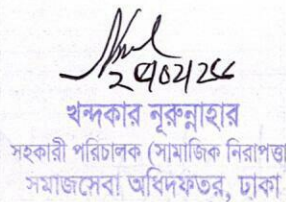 খন্দকার নূরুন্নাহার
সহকারী পরিচালক (সামাজিক নিরাপত্তা
সমাজসেবা অধিদফতর, ঢাকা